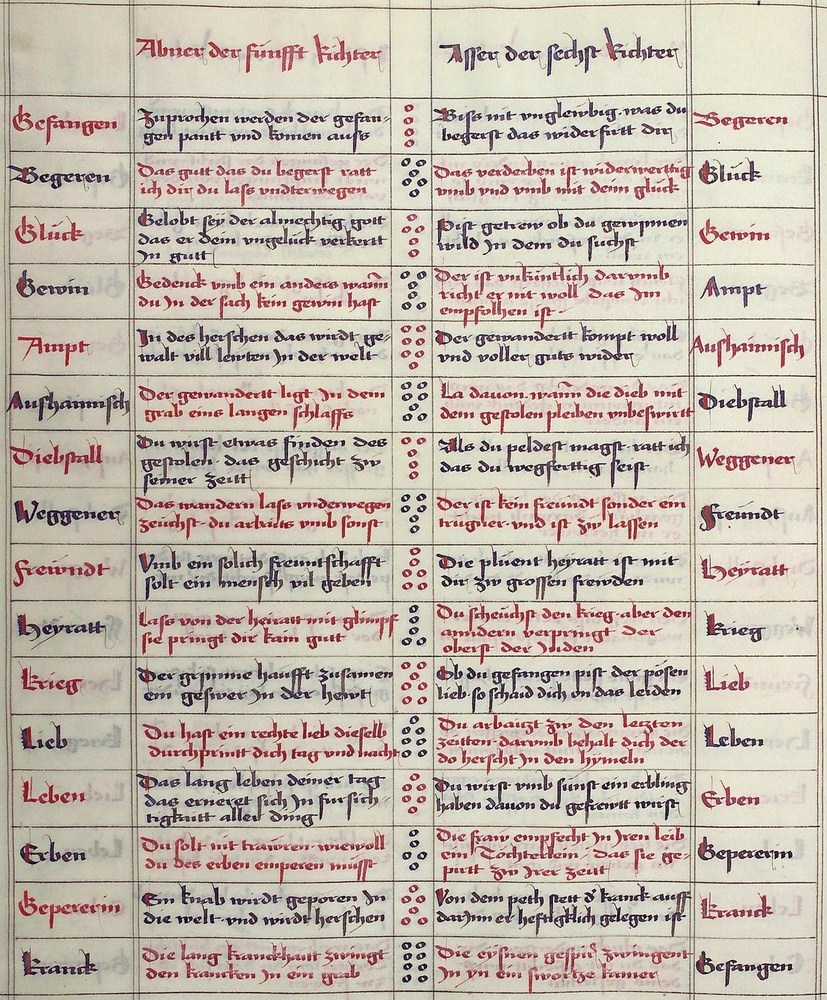 Abner der fünfft Richter
Asser der sechst Richter
Gefangen
Zuprochen werden der gefan-
gen pantt vnd komen auss
Biss nit vngleubig. was du
begerst das widerfertt dir
Begeren
Begeren
Das gutt das du begerst ratt
ich dir du lass vndterwegen
Das verderben ist widerwerttig
vmb vnd vmb mit deim glück
Glück
Glück
Gelobt sey der almechtig gott
das er dein vngelück verkertt
Jn gutt
Pist getrew ob du gewinnen
wild Jn dem du suchst
Gewin
Gewin
Gedenck vmb ein anders wann̄
du Jn der sach kein gewin hast
Der ist vnkúntlich darvmb
richt er nit woll das Jm
empfolhen ist
Ampt
Ampt
In des herschen das wirdt ge-
walt vill lewten Jn der welt
Der gewandertt kompt woll
vnd voller guts wider
Aushaimisch
Aushaimisch
Der gewandertt ligt Jn dem
grab eins langen schlaffs
La davon. wann̄ die dieb mit
dem gestolen pleiben vnbeswertt
Diebstall
Diebstall
Du wirst etwas finden des
gestolen. das geschicht zw
seiner zeitt
Als du peldest magst. ratt ich
das du wegferttig seist
Weggener
Weggener
Das wandern lass vnderwegen
zeuchst. du arbaits vmb sonst
Der ist kein freundt sonder ein
trügner. vnd ist zw lassen
Freundt
Frewndt
Vmb ein solich freuntschafft
solt ein mensch vil geben
Die pluent heyratt ist mit
dir zw grossen frewden
Heyratt
Heyratt
Lass von der heiratt mit glimpf
sie pringt dir kain gutt
Du scheuchst den krieg. aber den
anndern verpringt der
oberst der Juden
Krieg
Krieg
Der grimme haufft zusamen
ein geswer Jn der hewt
Ob du gefangen pist der pösen
lieb. so schaid dich on das leiden
Lieb
Lieb
Du hast ein rechte lieb dieselb
durchprintt dich tag vnd nacht
Du arbaitzt zw den letzten
zeitten. darvmb behalt dich der
do herscht Jn den hymeln
Leben
Leben
Das lang leben deiner tag
das erneret sich Jn fursich-
tigkaitt aller ding
Du wirst vmb sunst ein erbling
haben davon du gefrewtt wirst
Erben
Erben
Du solt nit trawren. wiewoll
du des erben emperen müsst
Die fraw empfecht Jn Iren leib
ein Töchterlein. das sie ge-
pirtt zw Irer zeitt
Gepererin
Gepererin
Ein knab wirdt geporen Jn
die welt. vnd wirdt herschen
Von dem peth stett d' kranck auff
darJnn er hefftigklich gelegen ist
Kranck
Kranck
Die lang kranckhaitt zwingt
den krancken Jn ein grab
Die eysnen zwingent
Jn yn ein swortze kamer
Gefangen